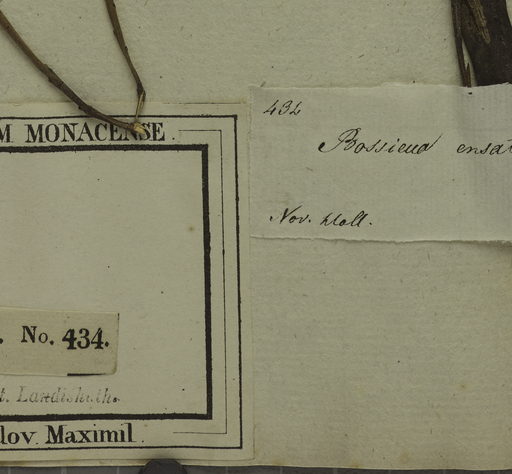 M MONACENSE
No. 434.
t. Landishuth.
lov. Maximil.
434
Bossieua ensat
Nov. Holl.